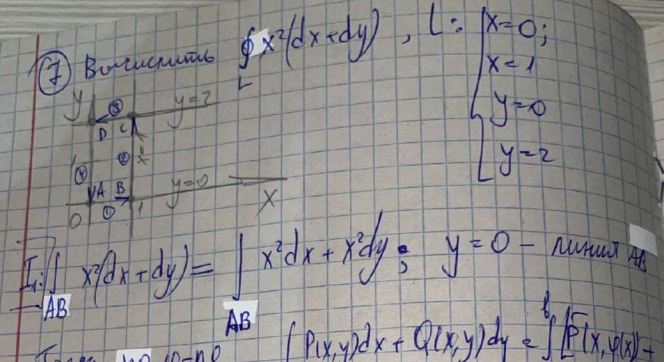 ⑦ Вычислить ∮_L x²(dx+dy), L: { x=0; x=1 y=0 y=2
y
③
y=2
D C
④
②
A B
y=0
0 ① 1
x
I₁: ∫_AB x²(dx+dy) = ∫_AB x²dx + x²dy; y=0 – линия AB
∫ P(x,y)dx + Q(x,y)dy = ∫ [P(x, φ(x)) +